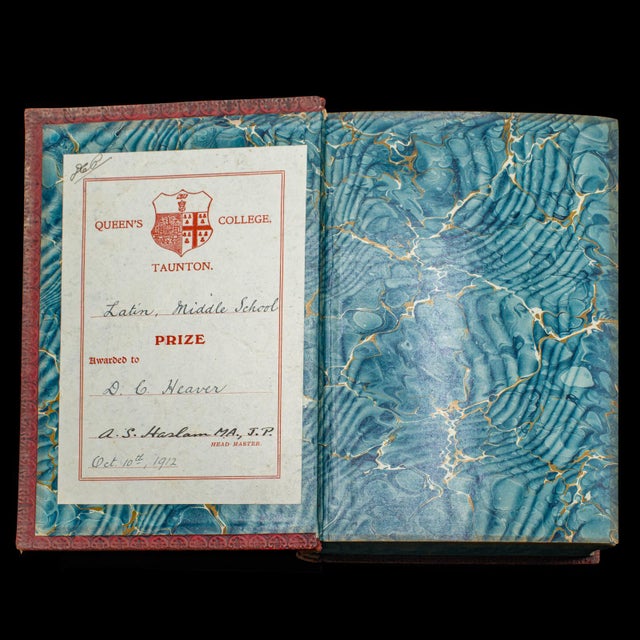 QUEEN'S COLLEGE,
TAUNTON.
Latin, Middle School
PRIZE
Awarded to
D. C. Heaver
A. S. Haslam M.A., J.P.
HEAD MASTER.
Oct. 10th, 1912